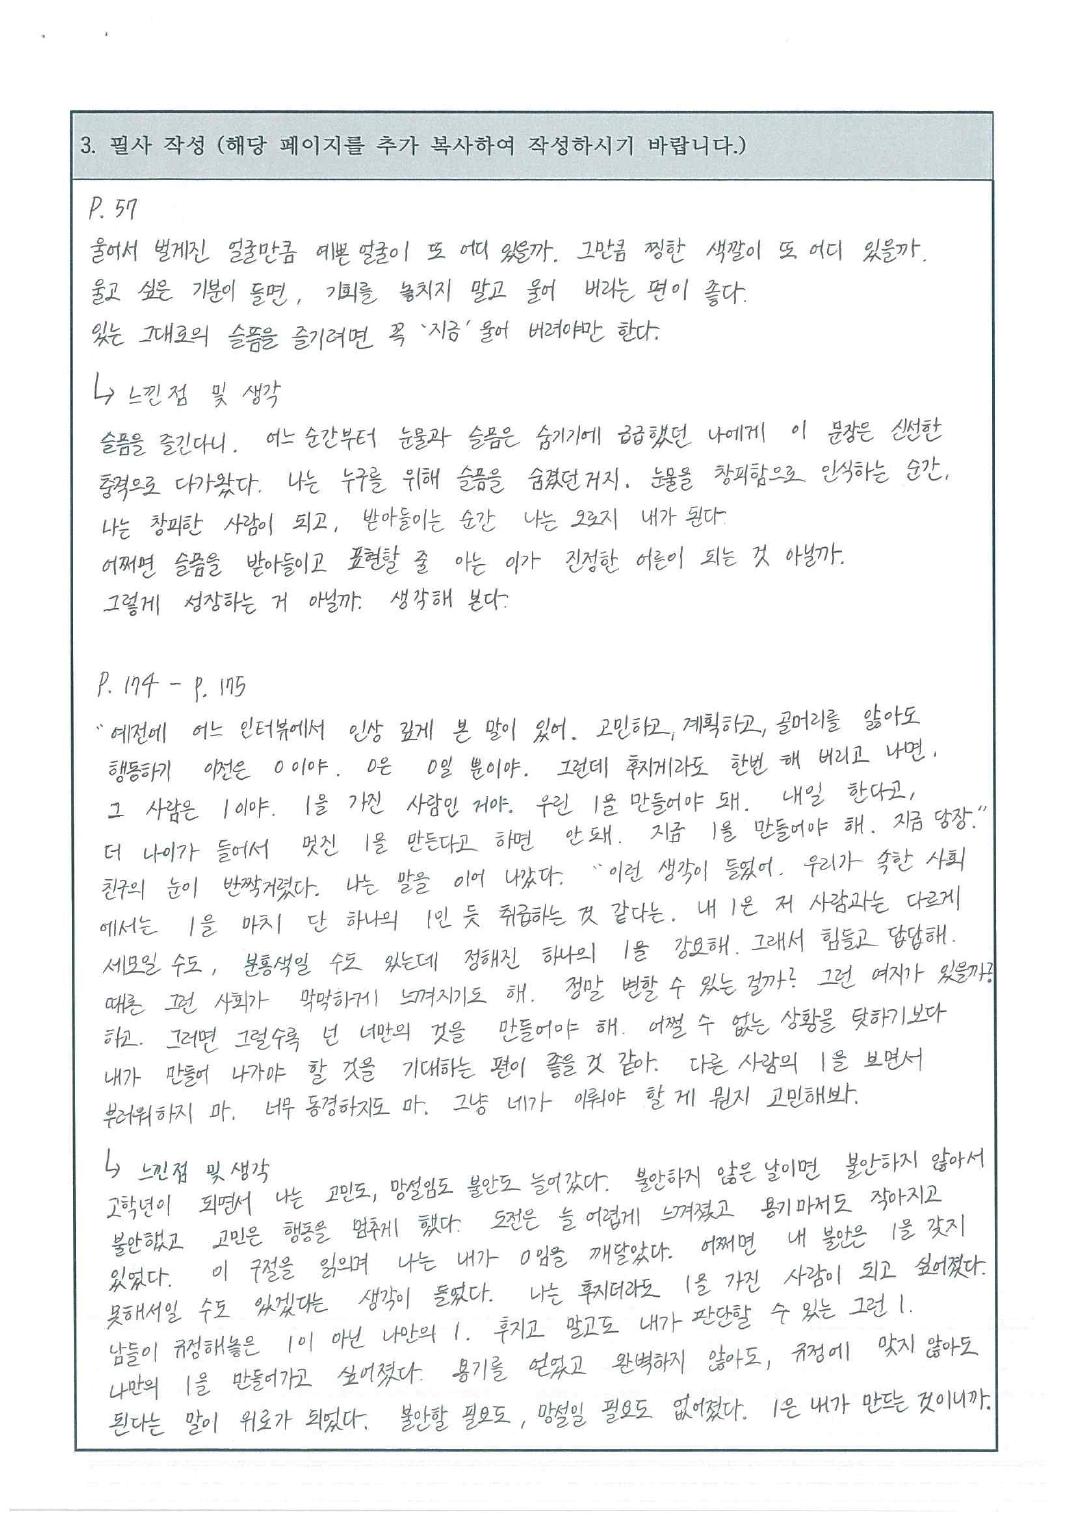 3. 필사 작성 (해당 페이지를 추가 복사하여 작성하시기 바랍니다.)
P. 57
울어서 벌게진 얼굴만큼 예쁜 얼굴이 또 어디 있을까. 그만큼 찡한 색깔이 또 어디 있을까.
울고 싶은 기분이 들면, 기회를 놓치지 말고 울어 버리는 편이 좋다.
있는 그대로의 슬픔을 즐기려면 꼭 '지금' 울어 버려야만 한다.
↳ 느낀점 및 생각
슬픔을 즐긴다니. 어느 순간부터 눈물과 슬픔은 숨기기에 급급했던 나에게 이 문장은 신선한
충격으로 다가왔다. 나는 누구를 위해 슬픔을 숨겼던거지. 눈물을 창피함으로 인식하는 순간,
나는 창피한 사람이 되고, 받아들이는 순간 나는 오로지 내가 된다.
어쩌면 슬픔을 받아들이고 표현할 줄 아는 이가 진정한 어른이 되는 것 아닐까.
그렇게 성장하는 거 아닐까. 생각해 본다.
P. 174 - P. 175
"예전에 어느 인터뷰에서 인상 깊게 본 말이 있어. 고민하고, 계획하고, 골머리를 앓아도
행동하기 이전은 0이야. 0은 0일 뿐이야. 그런데 후지게라도 한번 해 버리고 나면,
그 사람은 1이야. 1을 가진 사람인 거야. 우린 1을 만들어야 돼. 내일 한다고,
더 나이가 들어서 멋진 1을 만든다고 하면 안돼. 지금 1을 만들어야 해. 지금 당장."
친구의 눈이 반짝거렸다. 나는 말을 이어 나갔다. "이런 생각이 들었어. 우리가 속한 사회
에서는 1을 마치 단 하나의 1인 듯 취급하는 것 같다는. 내 1은 저 사람과는 다르게
세모일 수도, 분홍색일 수도 있는데 정해진 하나의 1을 강요해. 그래서 힘들고 답답해.
때론 그런 사회가 막막하게 느껴지기도 해. 정말 변할 수 있는 걸까? 그런 여지가 있을까?
하고. 그러면 그럴수록 넌 너만의 것을 만들어야 해. 어쩔 수 없는 상황을 탓하기보다
내가 만들어 나가야 할 것을 기대하는 편이 좋을 것 같아. 다른 사람의 1을 보면서
부러워하지 마. 너무 동경하지도 마. 그냥 네가 이뤄야 할 게 뭔지 고민해봐.
↳ 느낀점 및 생각
고학년이 되면서 나는 고민도, 망설임도 불안도 늘어갔다. 불안하지 않은 날이면 불안하지 않아서
불안했고 고민은 행동을 멈추게 했다. 도전은 늘 어렵게 느껴졌고 용기마저도 작아지고
있었다. 이 구절을 읽으며 나는 내가 0임을 깨달았다. 어쩌면 내 불안은 1을 갖지
못해서일 수도 있겠다는 생각이 들었다. 나는 후지더라도 1을 가진 사람이 되고 싶어졌다.
남들이 규정해놓은 1이 아닌 나만의 1. 후지고 말고도 내가 판단할 수 있는 그런 1.
나만의 1을 만들어가고 싶어졌다. 용기를 얻었고 완벽하지 않아도, 규정에 맞지 않아도
된다는 말이 위로가 되었다. 불안할 필요도, 망설일 필요도 없어졌다. 1은 내가 만드는 것이니까.